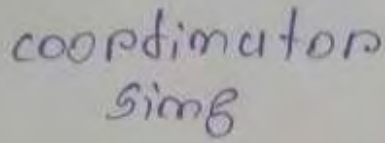 coordinator
sing